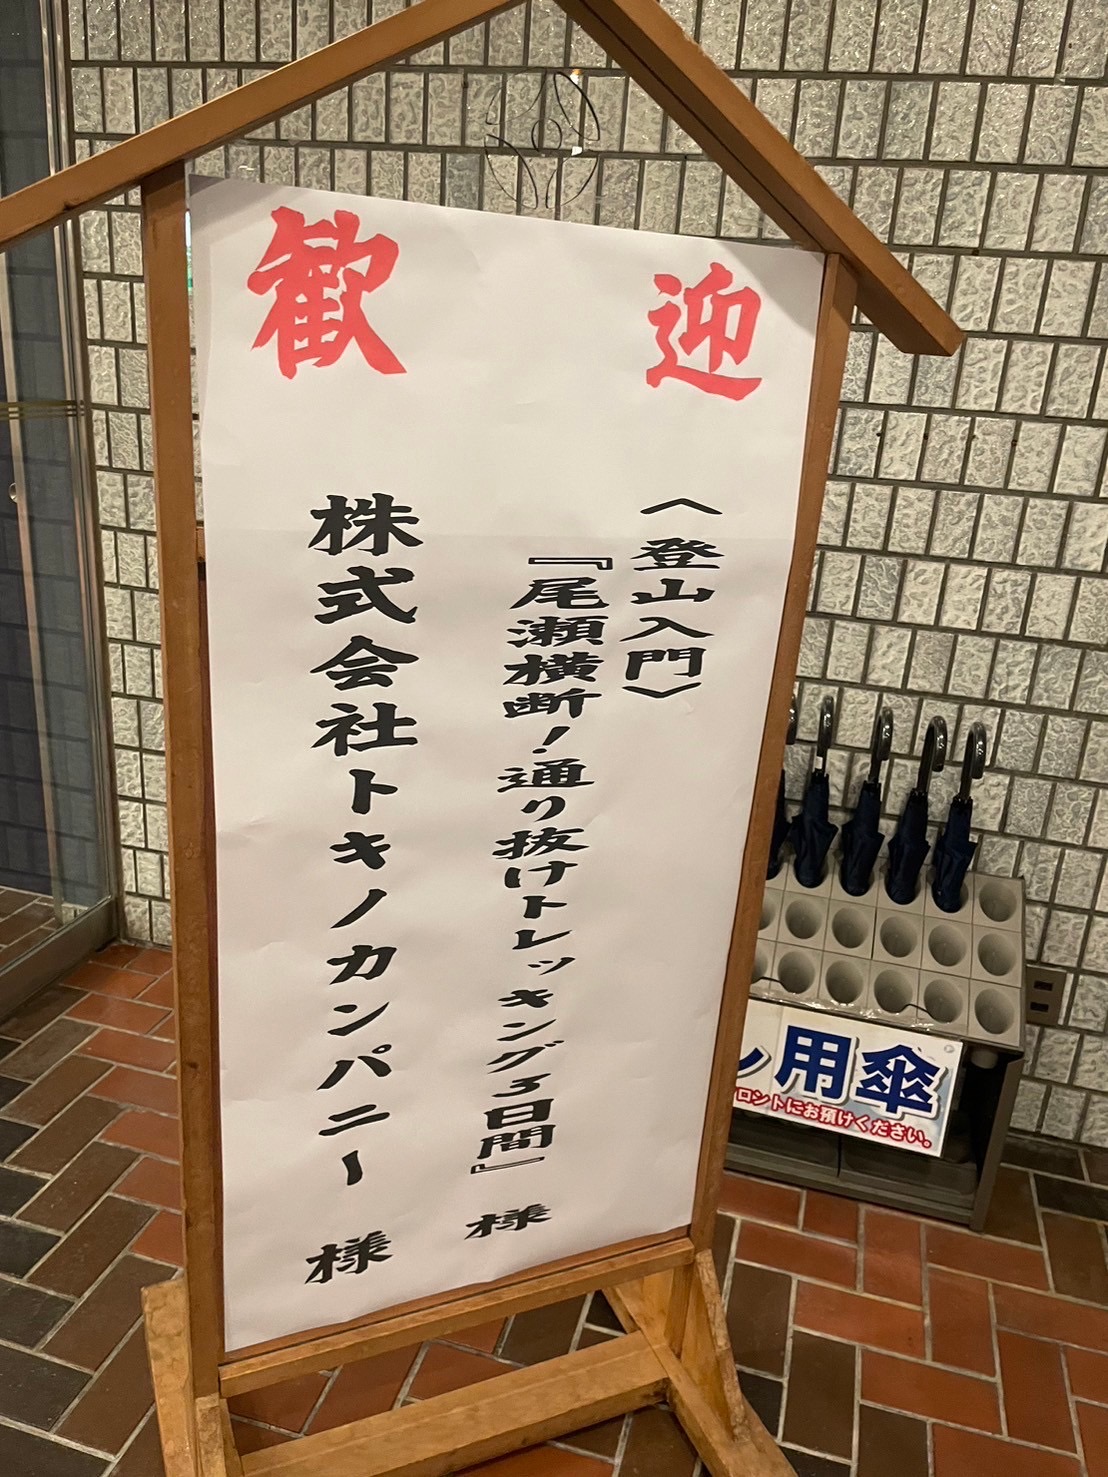 歓迎
〈登山入門〉
『尾瀬横断！通り抜けトレッキング3日間』 様
株式会社トキノカンパニー 様
用傘
ロントにお預けください。